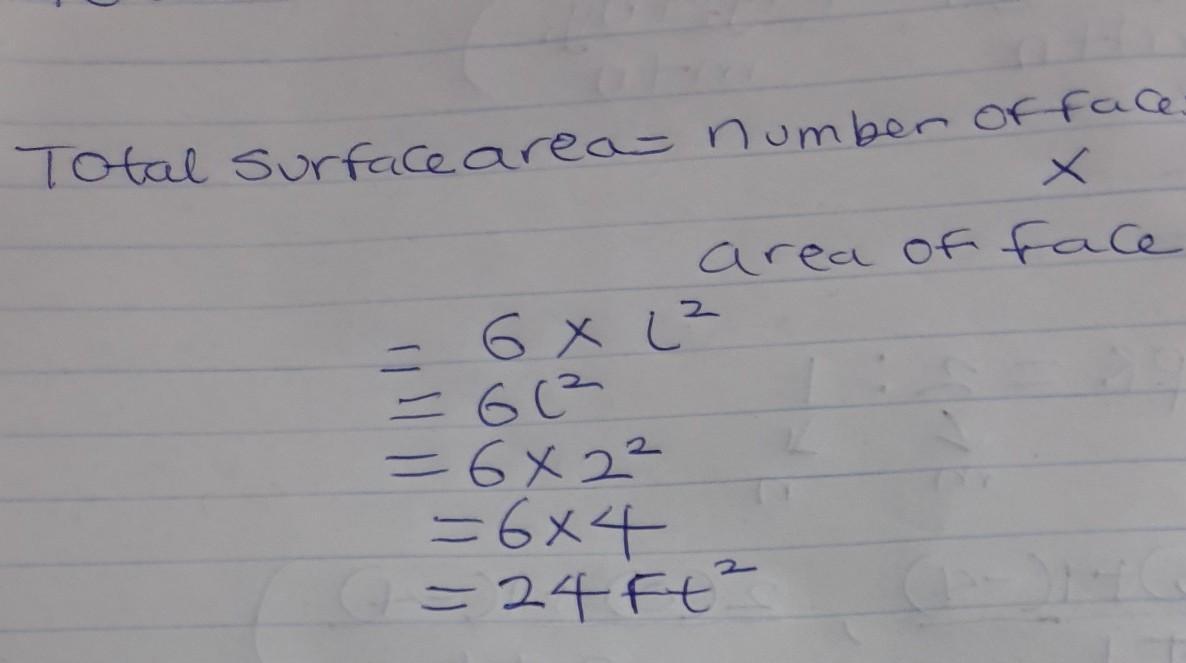 Total surface area = number of face
×
area of face
= 6 × l²
= 6l²
= 6 × 2²
= 6 × 4
= 24 Ft²